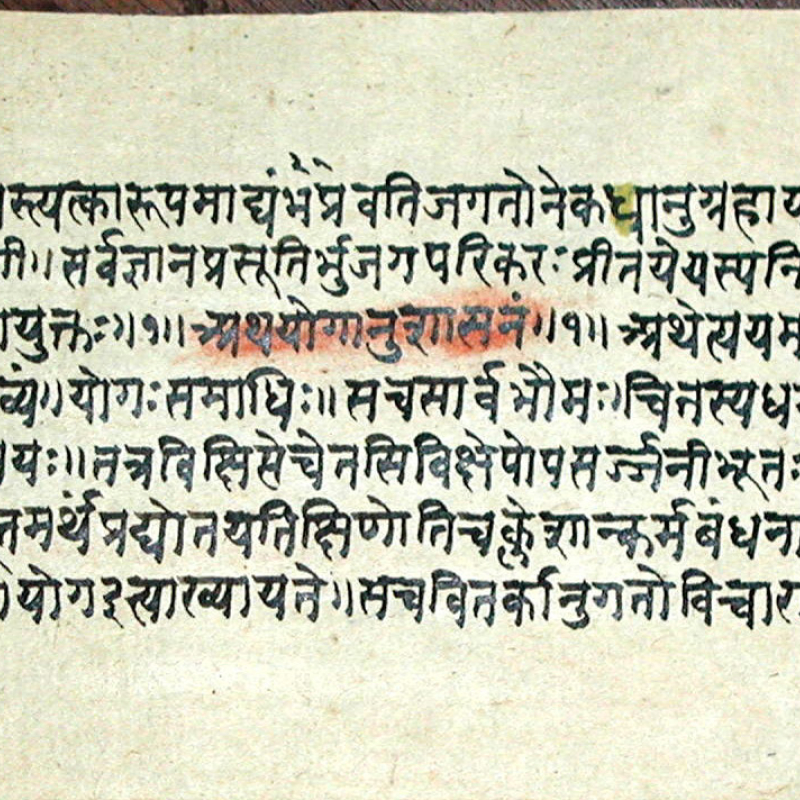 स्त्यत्कारूपमाद्यंभेप्रेवतिजगतोनेकधानुग्रहाय
॥सर्वज्ञानप्रसूतिर्भुजगपरिकरःप्रीतयेयस्यनि
युक्तः॥१॥अथयोगानुशासनं॥१॥अथेत्ययम
व्यं॥योगःसमाधिः॥सचसार्वभौमः॥चितस्यध
यः॥तत्रविक्षिप्तेचेतसिविक्षेपोपसर्ज्जनीभूतः
तमर्थंप्रद्योतयतिक्षिणोतिचक्लेशान्कर्मबंधना
योगइत्याख्यायते॥सचवितर्कानुगतोविचारा